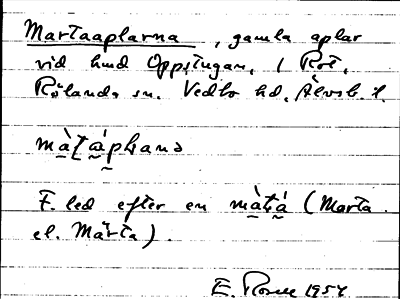 Martaaplarna, gamla aplar
vid hmd Oppstugan, i Rot.
Rölanda sn. Vedbo hd, Älvsb. l.
màt̯áp̯hana
F. led efter en màt̯á (Marta
el. Märta).
1954